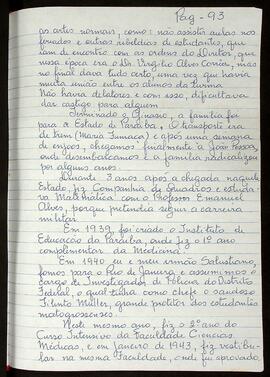 Pag - 93
as artes normais, como: não assistir aulas nos
feriados e outras rebeldias de estudantes, que
iam de encontro com as ordens do Diretor, que
nessa época era o Dr. Virgílio Alves Corrêa, mas
no final dava tudo certo, uma vez que havia
muita união entre os alunos da turma.
Não havia delatores e com isso, dificultava
dar castigo para alguem.
Terminado o Ginásio, a família foi
para o Estado da Paraíba, o transporte era
de trem (Maria fumaça) e após uma semana
de enjoos, chegamos finalmente à João Pessoa,
onde desembarcamos e a família radicalizou
por alguns anos.
Durante 3 anos após a chegada naquele
Estado, fiz Companhia de Quadros e estuda-
va Matemática com o Professor Emanuel
Alves, porque pretendia seguir a carreira
militar.
Em 1939, foi criado o Instituto de
Educação da Paraíba, onde fiz o 1º ano
complementar de Medicina.
Em 1940 eu e meu irmão Salustiano,
fomos para o Rio de Janeiro e assumimos o
cargo de Investigador de Polícia do Distrito
Federal, o qual tinha como chefe o saudoso
Filinto Müller, grande protetor dos estudantes
matogrossenses.
Neste mesmo ano, fiz o 2º ano do
Curso Intensivo da Faculdade Ciencias
Médicas, e em Janeiro de 1943, fiz vestibu-
lar na mesma Faculdade, onde fui aprovado